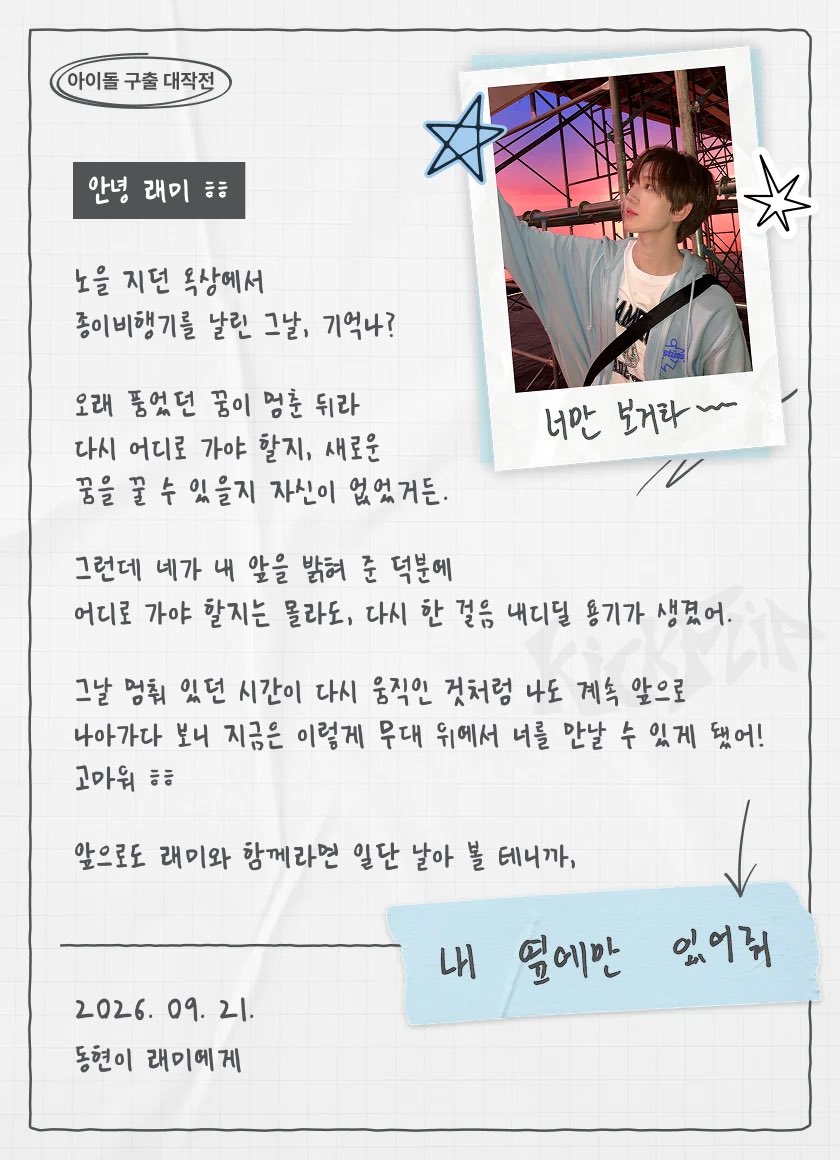 아이돌 구출 대작전
안녕 래미 ㅎㅎ
노을 지던 옥상에서
종이비행기를 날린 그날, 기억나?
너만 보거라~~
오래 품었던 꿈이 멈춘 뒤라
다시 어디로 가야 할지, 새로운
꿈을 꿀 수 있을지 자신이 없었거든.
그런데 네가 내 앞을 밝혀 준 덕분에
어디로 가야 할지는 몰라도, 다시 한 걸음 내디딜 용기가 생겼어.
KickFlip
그날 멈춰 있던 시간이 다시 움직인 것처럼 나도 계속 앞으로
나아가다 보니 지금은 이렇게 무대 위에서 너를 만날 수 있게 됐어!
고마워 ㅎㅎ
앞으로도 래미와 함께라면 일단 날아 볼 테니까,
내 옆에만 있어줘
2026. 09. 21.
동현이 래미에게